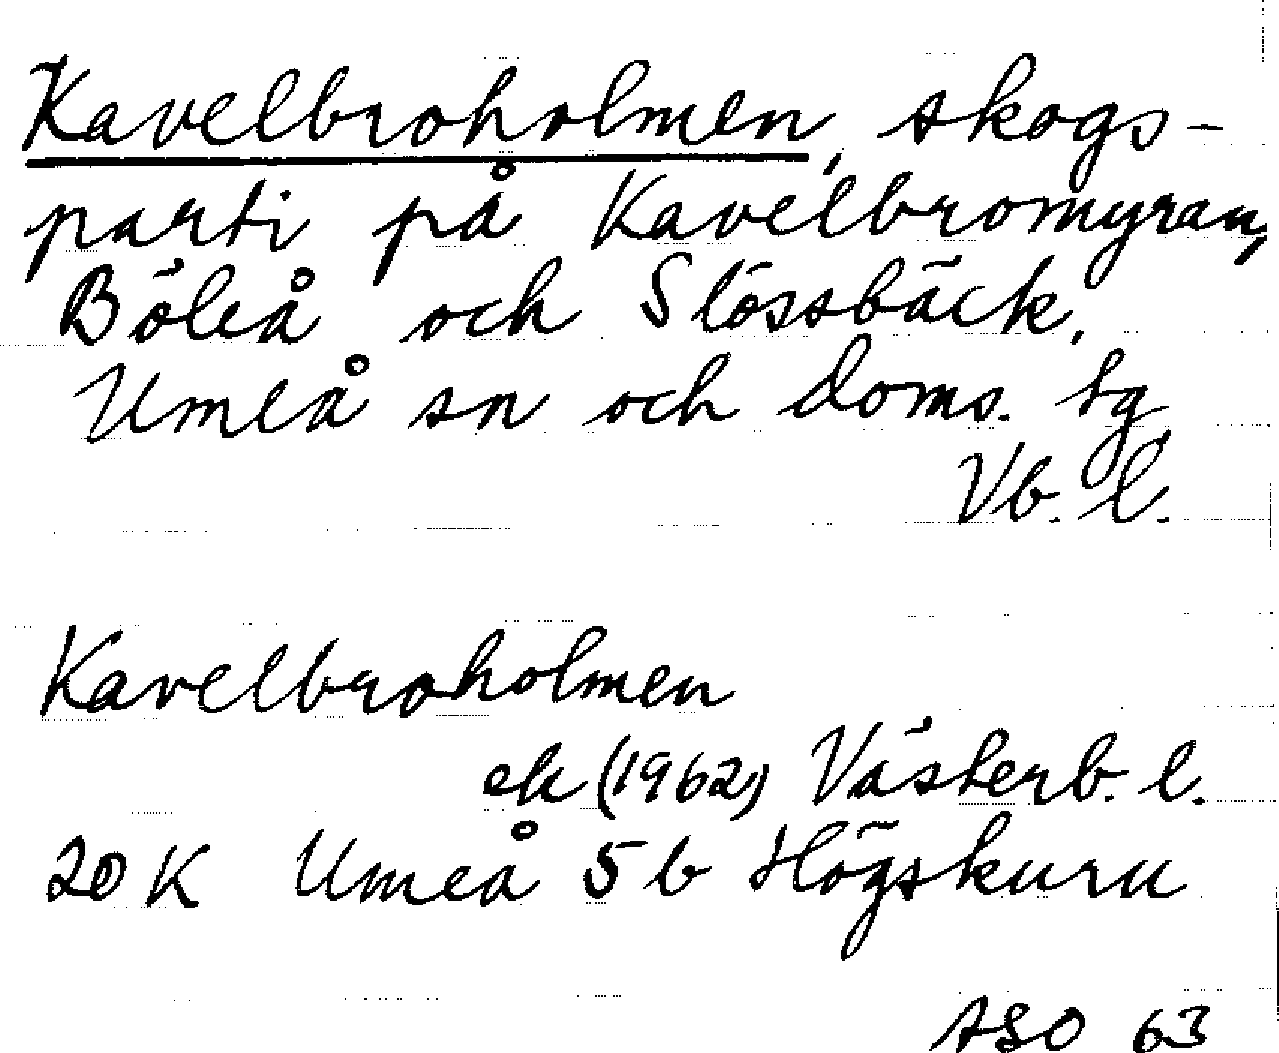 Kavelbroholmen, skogs-
parti på Kavelbromyran,
Böleå och Slössbäck,
Umeå sn och doms. tg
Vb. l.
Kavelbroholmen
ek (1962) Västerb. l.
20 K Umeå 5 b Högskuru
ASO 63